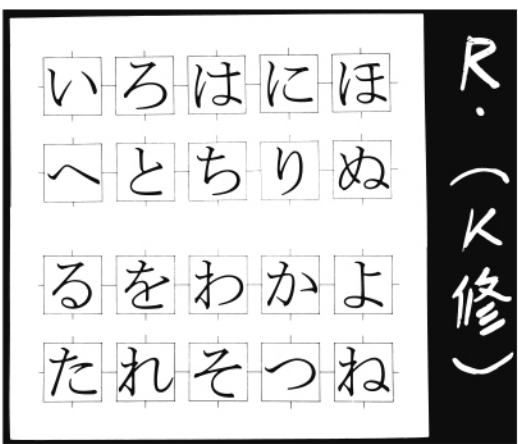 いろはにほ
へとちりぬ
るをわかよ
たれそつね
R.(K修)